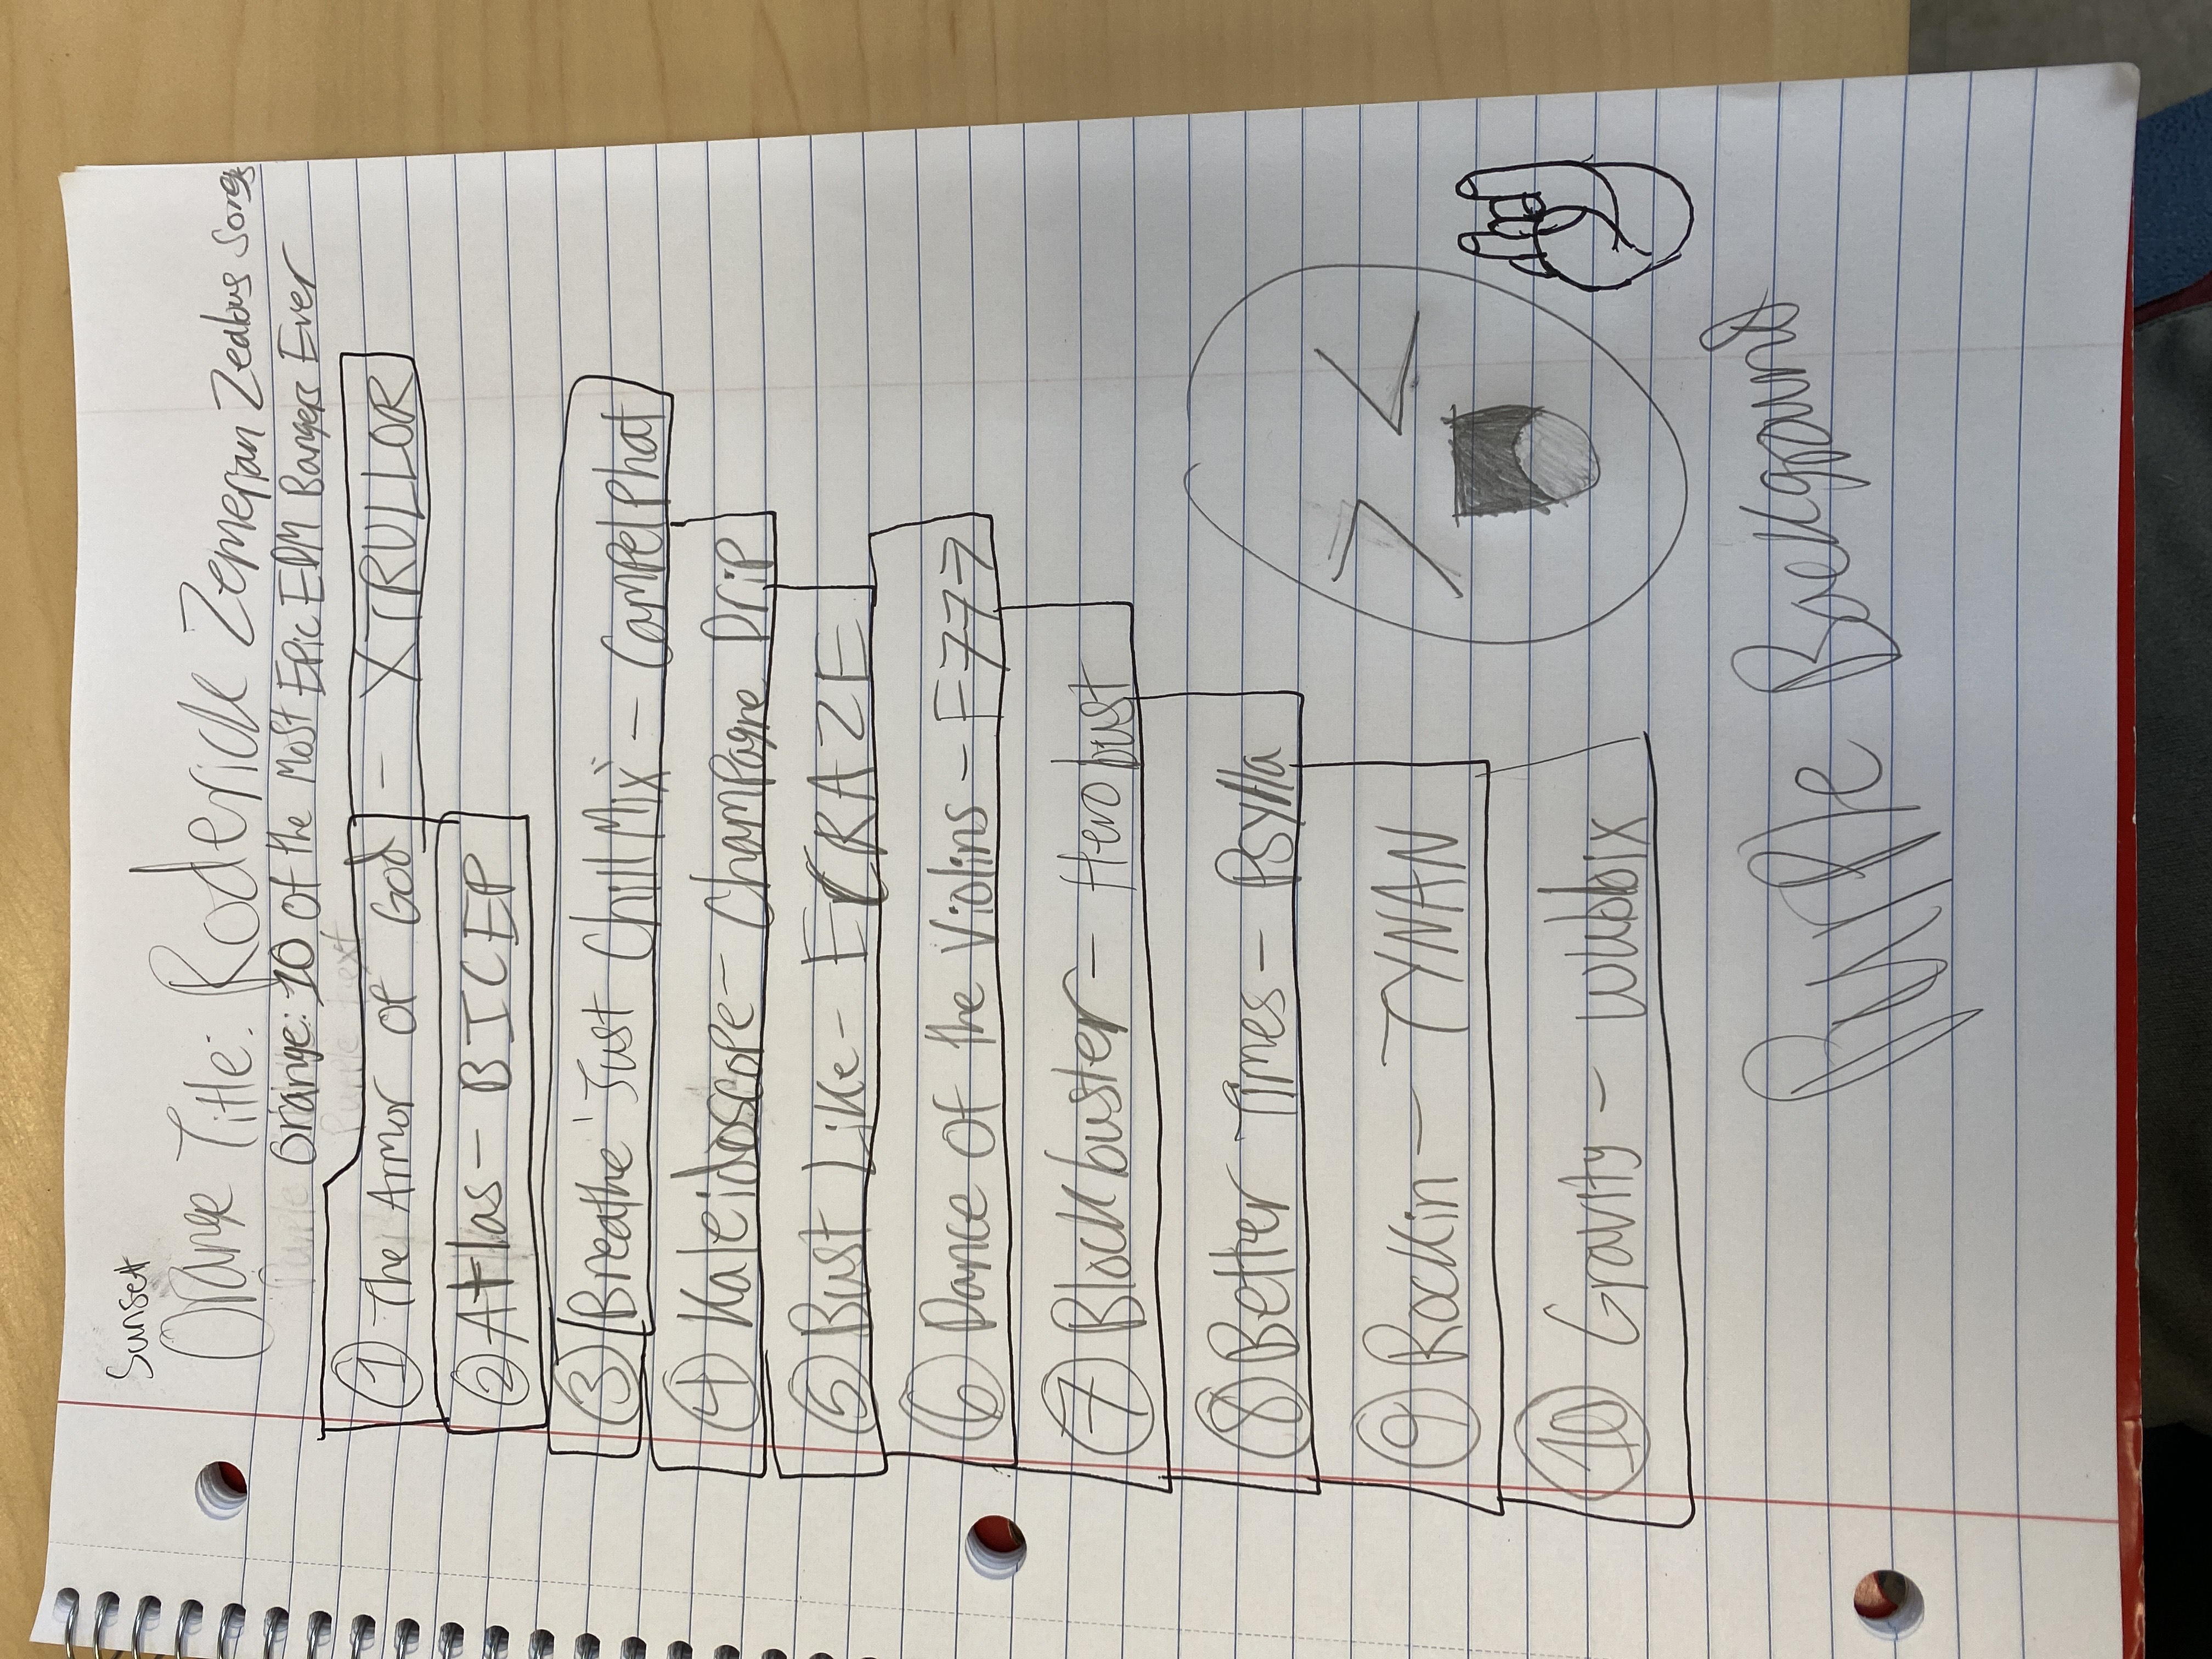 Sunset
Orange Title: Roderick Zemeran Zealous Songs
Orange: 10 of the Most Epic EDM Bangers Ever
Purple text
① The Armor of God - XTRULLOR
② Atlas - BICEP
③ Breathe 'Just Chill Mix' - Campelphat
④ Kaleidoscope - Champagne Drip
⑤ Bust Like - ECRAZE
⑥ Dance Of the Violins - F777
⑦ Blockbuster - Herobust
⑧ Better Times - Psylla
⑨ Rockin - TYNAN
⑩ Gravity - Wubbix
Purple Background